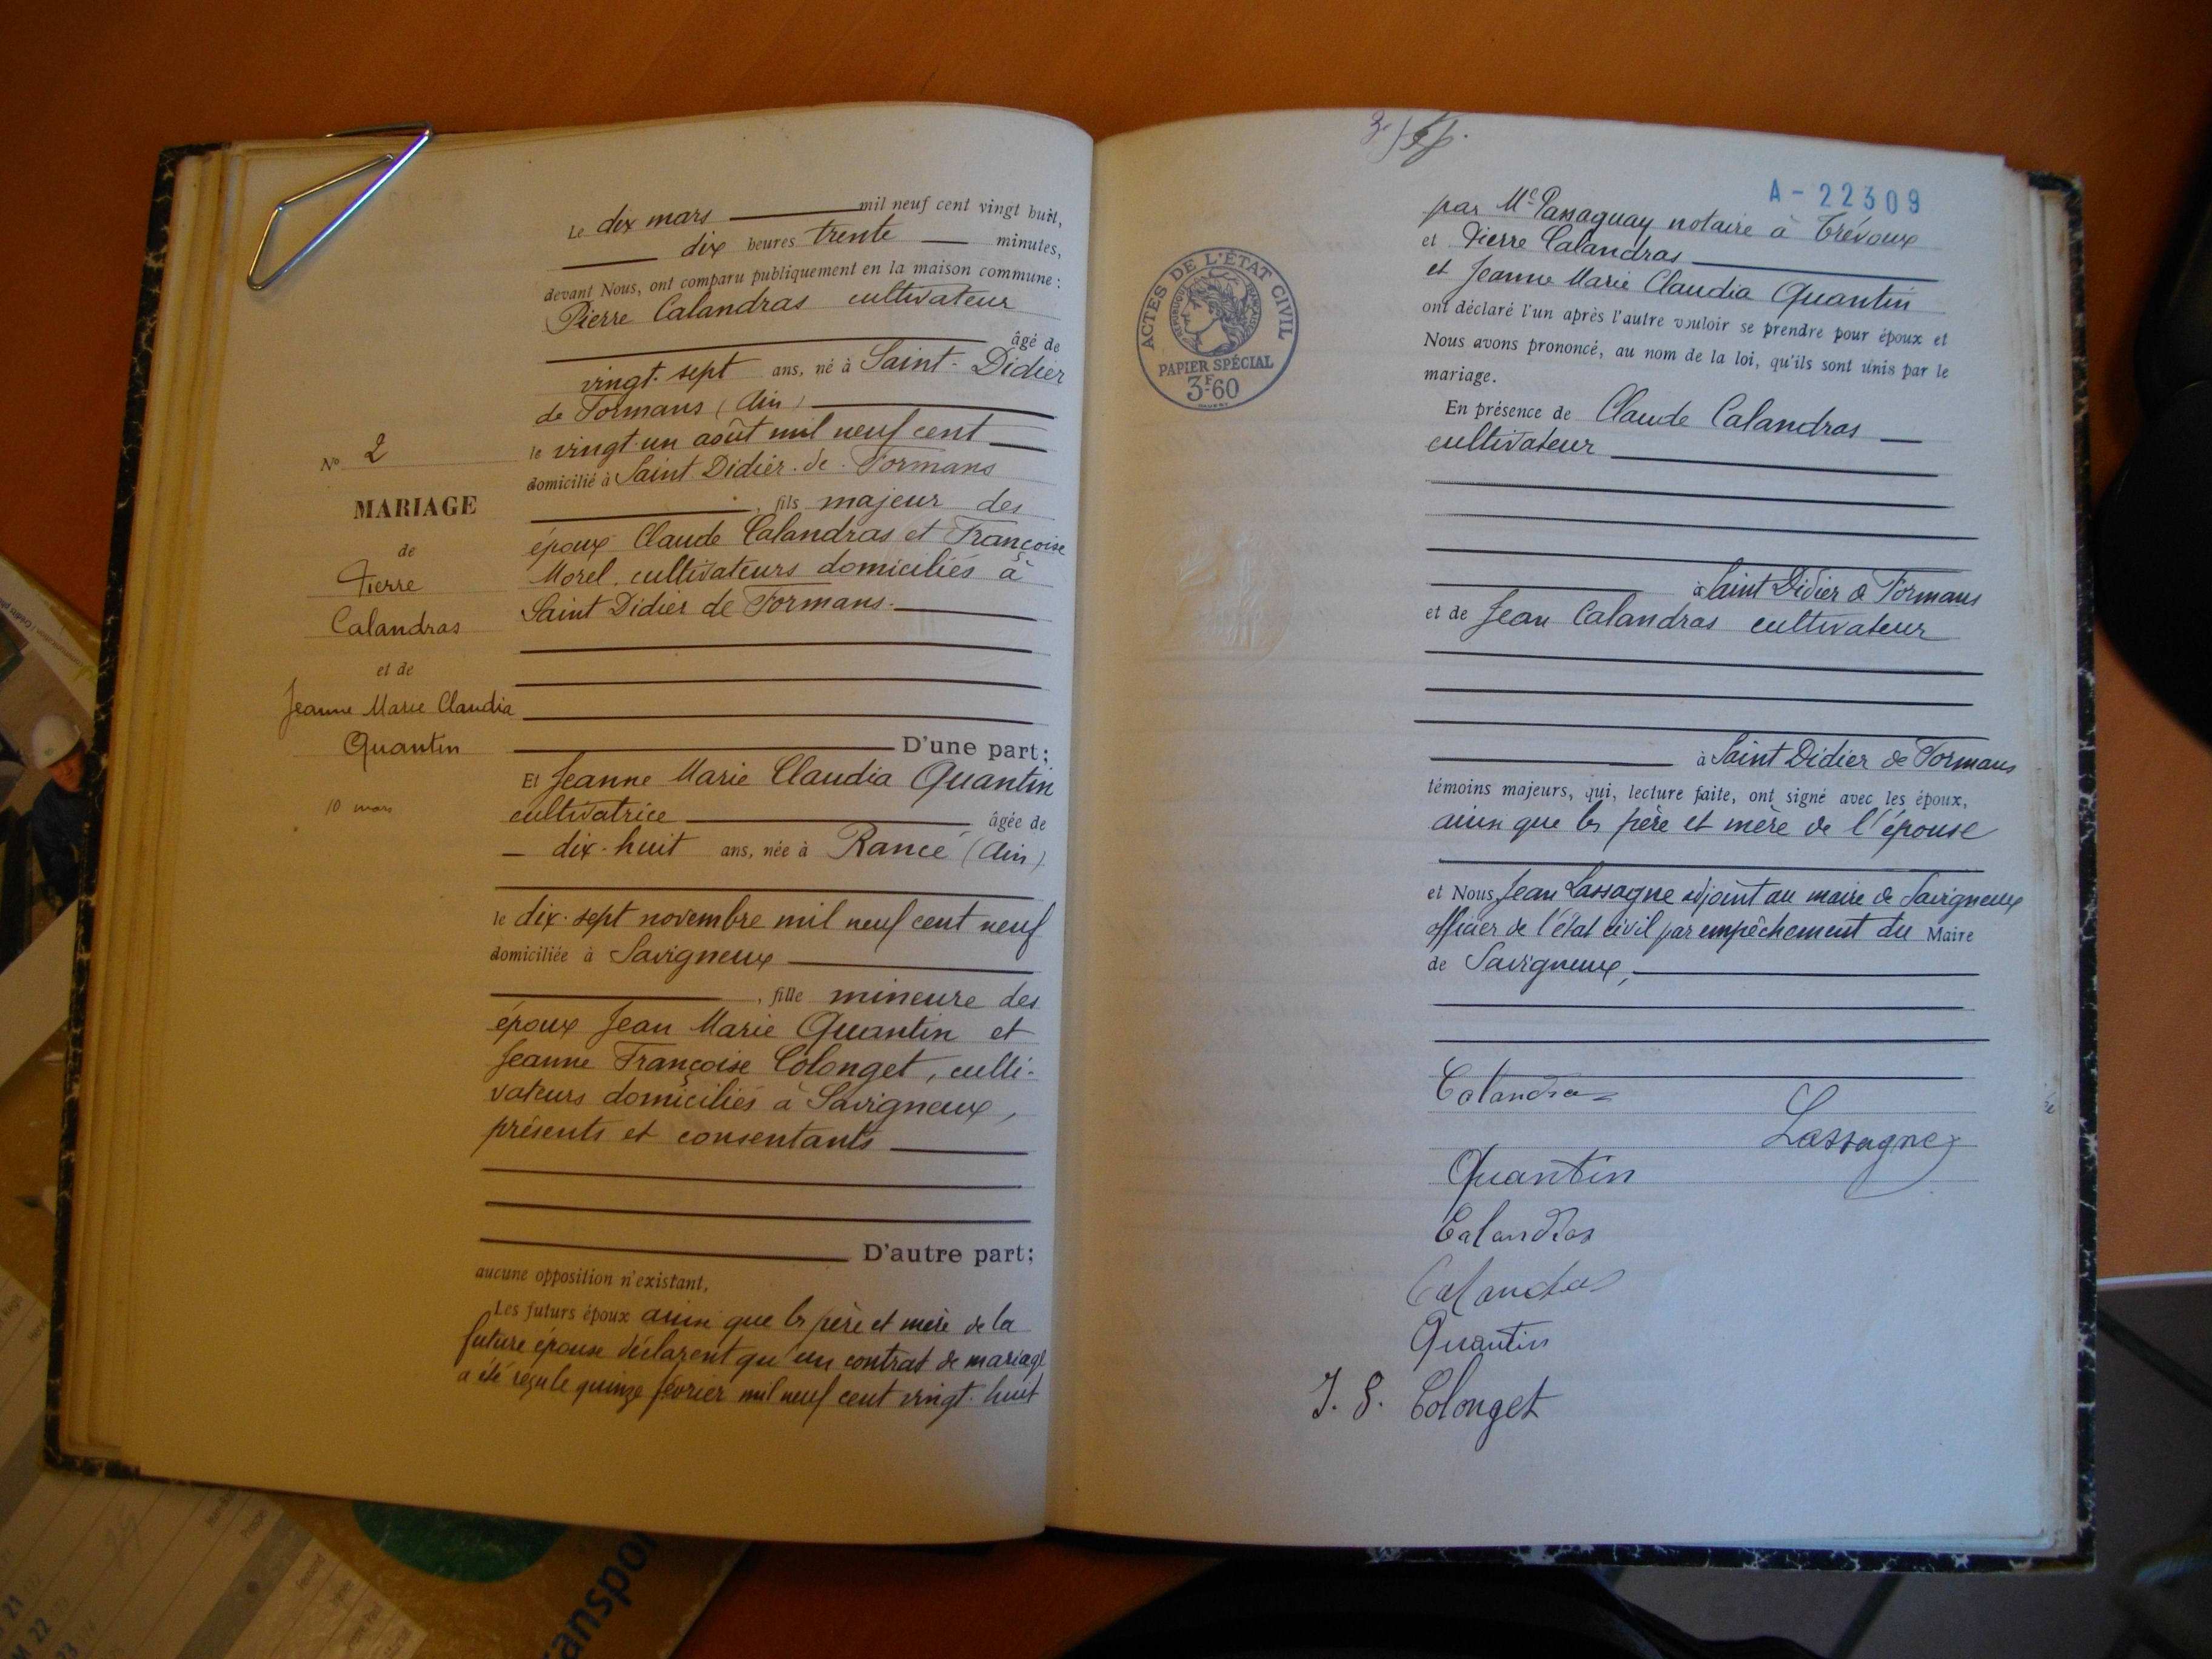 Le dix mars mil neuf cent vingt huit,
dix heures trente minutes,
devant Nous, ont comparu publiquement en la maison commune :
Pierre Calandras cultivateur
âgé de
vingt-sept ans, né à Saint-Didier
de Formans (Ain)
le vingt-un août mil neuf cent
domicilié à Saint Didier-de-Formans
, fils majeur des
époux Claude Calandras et Françoise
Morel, cultivateurs domiciliés à
Saint Didier de Formans.
D'une part;
Et Jeanne Marie Claudia Quantin
cultivatrice âgée de
dix-huit ans, née à Rancé (Ain)
le dix-sept novembre mil neuf cent neuf
domiciliée à Savigneux
, fille mineure des
époux Jean Marie Quantin et
Jeanne Françoise Colonget, culti-
vateurs domiciliés à Savigneux,
présents et consentants
D'autre part;
aucune opposition n'existant,
Les futurs époux ainsi que les père et mère de la
future épouse déclarent qu'un contrat de mariage
a été reçu le quinze février mil neuf cent vingt-huit
No 2
MARIAGE
de
Pierre
Calandras
et de
Jeanne Marie Claudia
Quantin
10 mars
A-22309
par Me Passaguay notaire à Trévoux
et Pierre Calandras
et Jeanne Marie Claudia Quantin
ont déclaré l'un après l'autre vouloir se prendre pour époux et
Nous avons prononcé, au nom de la loi, qu'ils sont unis par le
mariage.
En présence de Claude Calandras
cultivateur
à Saint Didier de Formans
et de Jean Calandras cultivateur
à Saint Didier de Formans
témoins majeurs, qui, lecture faite, ont signé avec les époux,
ainsi que les père et mère de l'épouse
et Nous, Jean Lassagne adjoint au maire de Savigneux
officier de l'état civil par empêchement du Maire
de Savigneux,
Calandras
Lassagne
Quantin
Calandras
Calandras
Quantin
J. F. Colonget
ACTES DE L'ÉTAT CIVIL
RÉPUBLIQUE FRANÇAISE
PAPIER SPÉCIAL
3F60
ansport
21
22
23